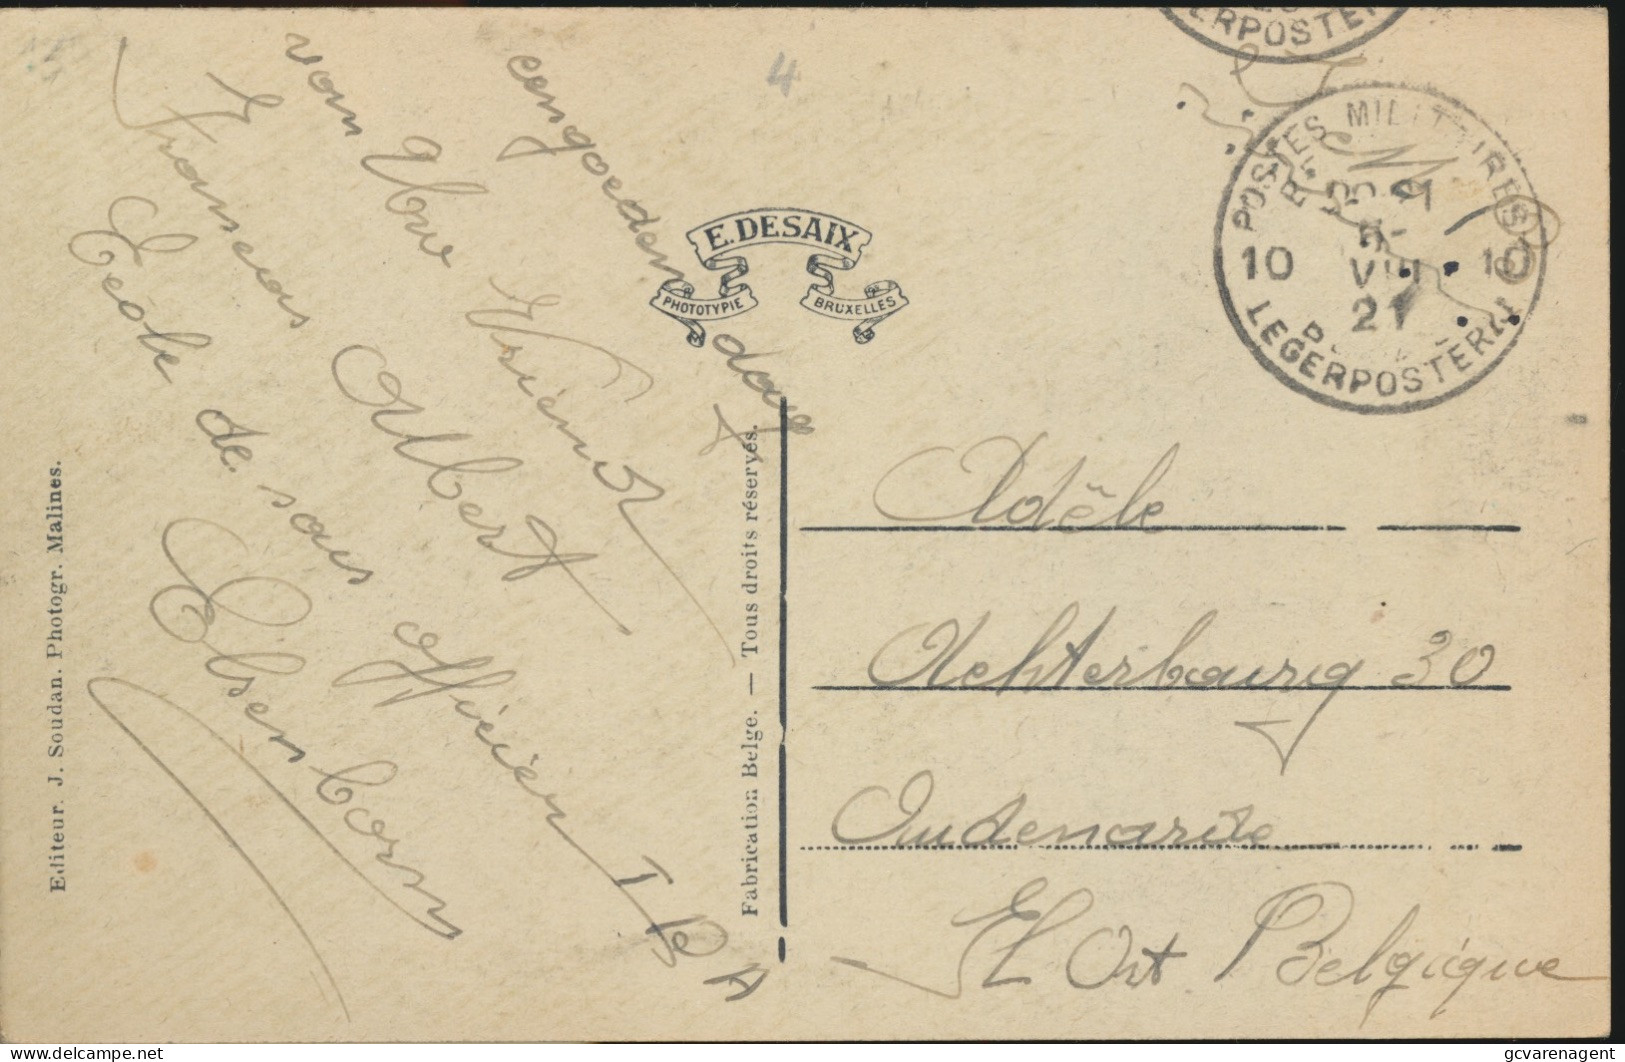 eengoedendag
van Uw Vriend
Franseus Albert
Ecole de sous officier I De A
Elsenborn
4
E. DESAIX
PHOTOTYPIE
BRUXELLES
Editeur. J. Soudan. Photogr. Malines.
Fabrication Belge. — Tous droits réservés.
ERPOSTER
POSTES MILITAIRES
10 10
VIII
21
LEGERPOSTERIJ
S. M.
Adèle
Achterbourg 30
Oudenarde
Fl Ort Belgique
delcampe.net
gcvarenagent